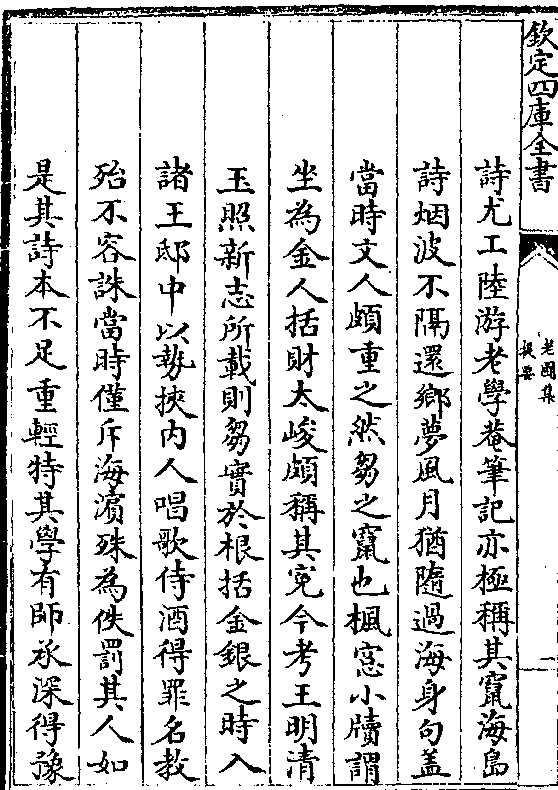 欽定四庫全書
老圃集
提要
一
詩尤工陸游老學菴筆記亦極稱其竄海島
詩烟波不隔還鄉夢風月猶隨過海身句盖
當時文人頗重之然芻之竄也楓窓小牘謂
坐為金人括財太峻頗稱其寃今考王明清
玉照新志所載則芻實於根括金銀之時入
諸王邸中以勢挾内人唱歌侍酒得罪名教
殆不容誅當時僅斥海濵殊為佚罰其人如
是其詩本不足重輕特其學有師承深得豫